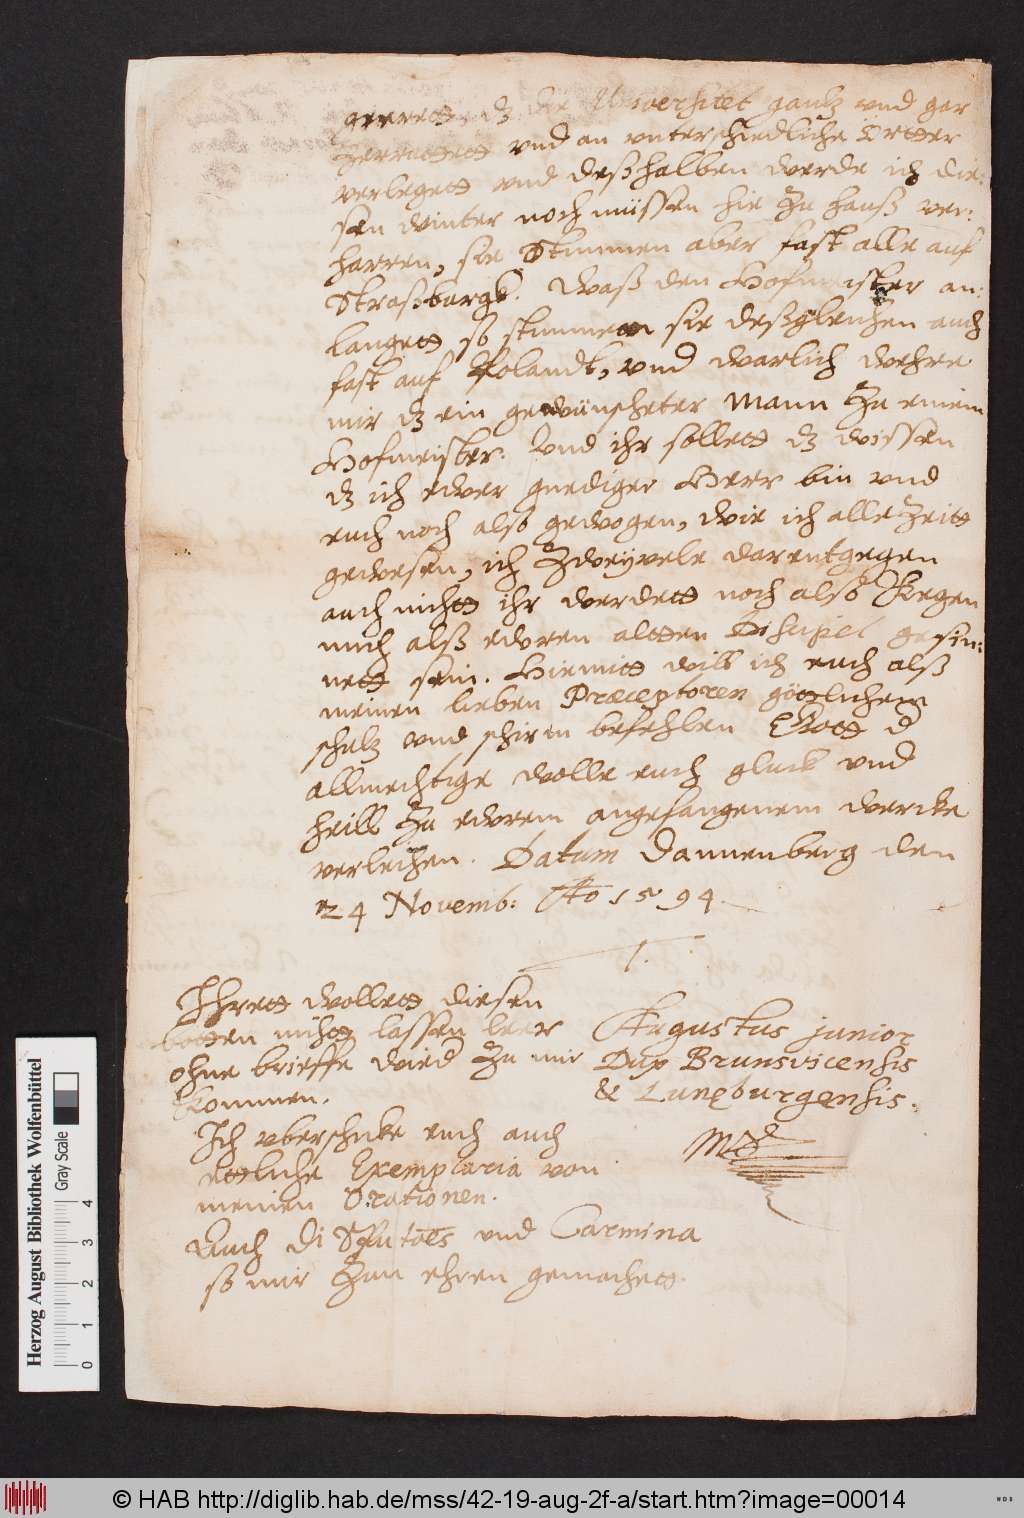 dz die Universitet gantz vnd gar
vnd an vnterschiedliche örtter
verlegett vnd deßhalben werde ich die:
sen winter noch müssen hie zu hauß ver:
harren, sie Stimmen aber fast alle auf
Straßburgk. Waß den Hofmeister an:
langett so stimmen sie deßgleichen auch
fast auf Rolandt, vnd warlich wehre
mir dz ein gewünscheter Mann zu einem
Hofmeister. Vnd ihr sollett dz wissen
dz ich ewer gnediger Herr bin vnd
euch noch also gewogen, wie ich alle Zeitt
gewesen, ich Zweyvele darentgegen
auch nichtt ihr werdett noch also kegen
mich alß ewren altten Discipel gesin:
nett sein. Hiemitt will ich euch alß
meinen lieben Præceptoren göttlichem
schutz vnd schirm befehlen Gott d
allmechtige wolle euch gluck vnd
heill zu ewrem angefangenem wercke
verleihen. Datum Dannenberg den
24 Novemb: Ao 1594.
Ihrett wollett diesen
botten nichtt lassen leer
ohne brieffe wied zu mir
kommen.
Augustus junior
Dux Brunsvicensis
& Lunęburgensis.
Mpp
Ich vberschicke euch auch
ettliche Exemplaria von
meinen Orationen.
Auch di und Carmina
so mir zun ehren gemachett.
Herzog August Bibliothek Wolfenbüttel
Gray Scale
0 1 2 3 4
© HAB http://diglib.hab.de/mss/42-19-aug-2f-a/start.htm?image=00014